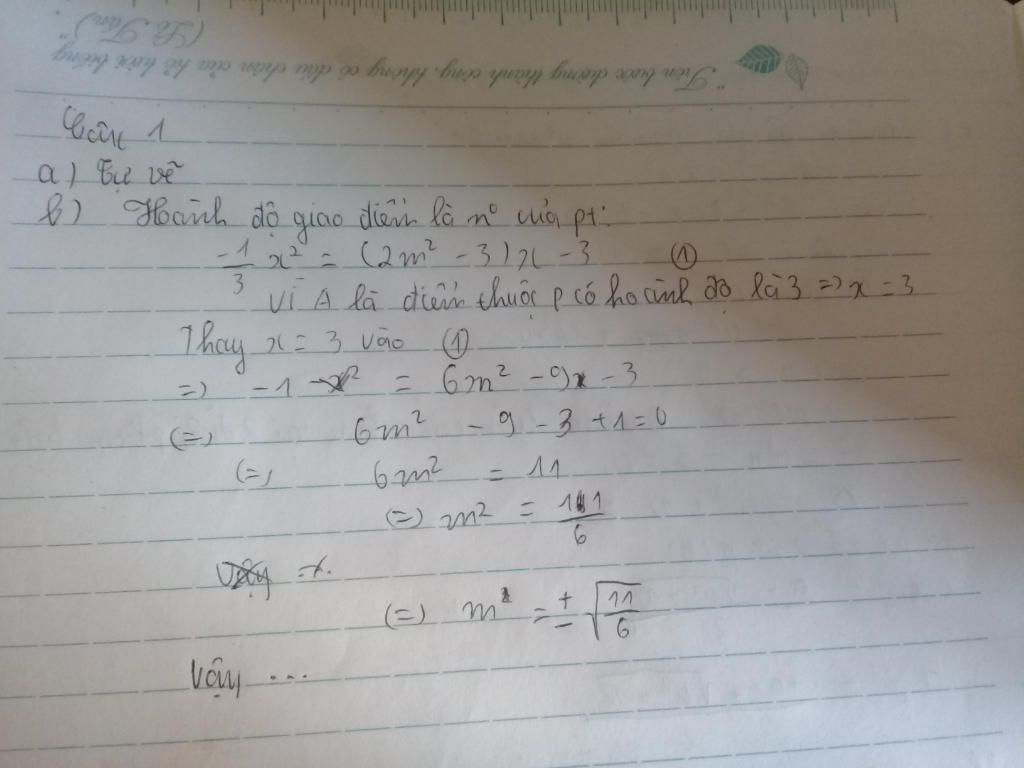 "Trên bước đường thành công, không có dấu chân của kẻ lười biếng"
(Lỗ Tấn)
Câu 1
a) Tự vẽ
b) Hoành độ giao điểm là nº của pt:
-1/3 x² = (2m² - 3)x - 3 ①
Vì A là điểm thuộc P có hoành độ là 3 => x = 3
Thay x = 3 vào ①
=> -1 = 6m² - 9 - 3
(=) 6m² - 9 - 3 + 1 = 0
(=) 6m² = 11
(=) m² = 11/6
(=) m = ± √(11/6)
Vậy ...